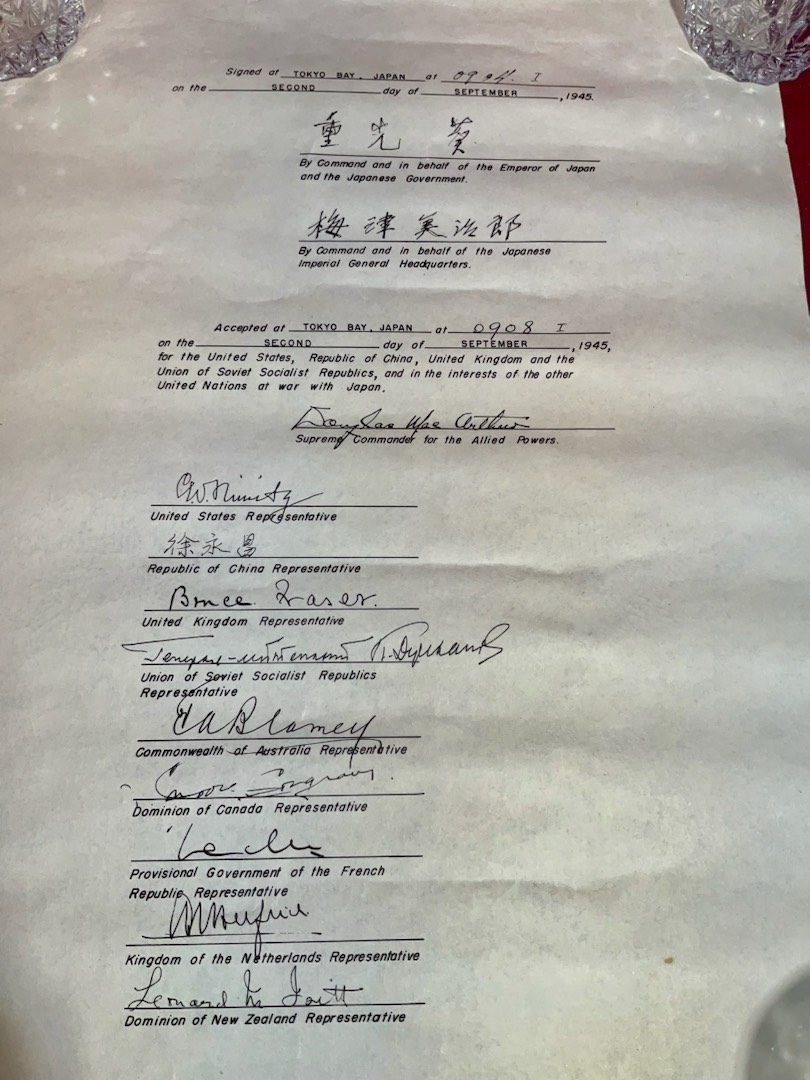 Signed at TOKYO BAY, JAPAN at 0904 I
on the SECOND day of SEPTEMBER, 1945.
重光葵
By Command and in behalf of the Emperor of Japan
and the Japanese Government.
梅津美治郎
By Command and in behalf of the Japanese
Imperial General Headquarters.
Accepted at TOKYO BAY, JAPAN at 0908 I
on the SECOND day of SEPTEMBER, 1945,
for the United States, Republic of China, United Kingdom and the
Union of Soviet Socialist Republics, and in the interests of the other
United Nations at war with Japan.
Douglas MacArthur
Supreme Commander for the Allied Powers.
C.W. Nimitz
United States Representative
徐永昌
Republic of China Representative
Bruce Fraser.
United Kingdom Representative
Генерал-лейтенант К. Деревянко
Union of Soviet Socialist Republics
Representative
T A Blamey
Commonwealth of Australia Representative
Dominion of Canada Representative
Provisional Government of the French
Republic Representative
Kingdom of the Netherlands Representative
Leonard M Isitt
Dominion of New Zealand Representative